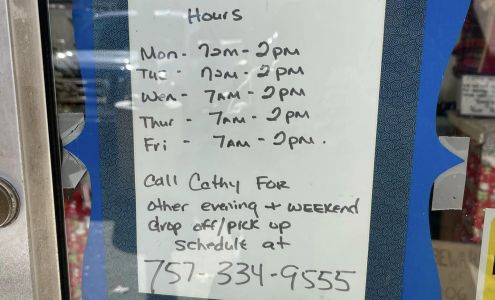 Hours
Mon - 7am - 2pm
Tue - 7am - 2pm
Wen - 7am - 2pm
Thur - 7am - 2pm
Fri - 7am - 2pm.
Call Cathy For
other evening + weekend
drop off/pick up
schedule at
757-334-9555